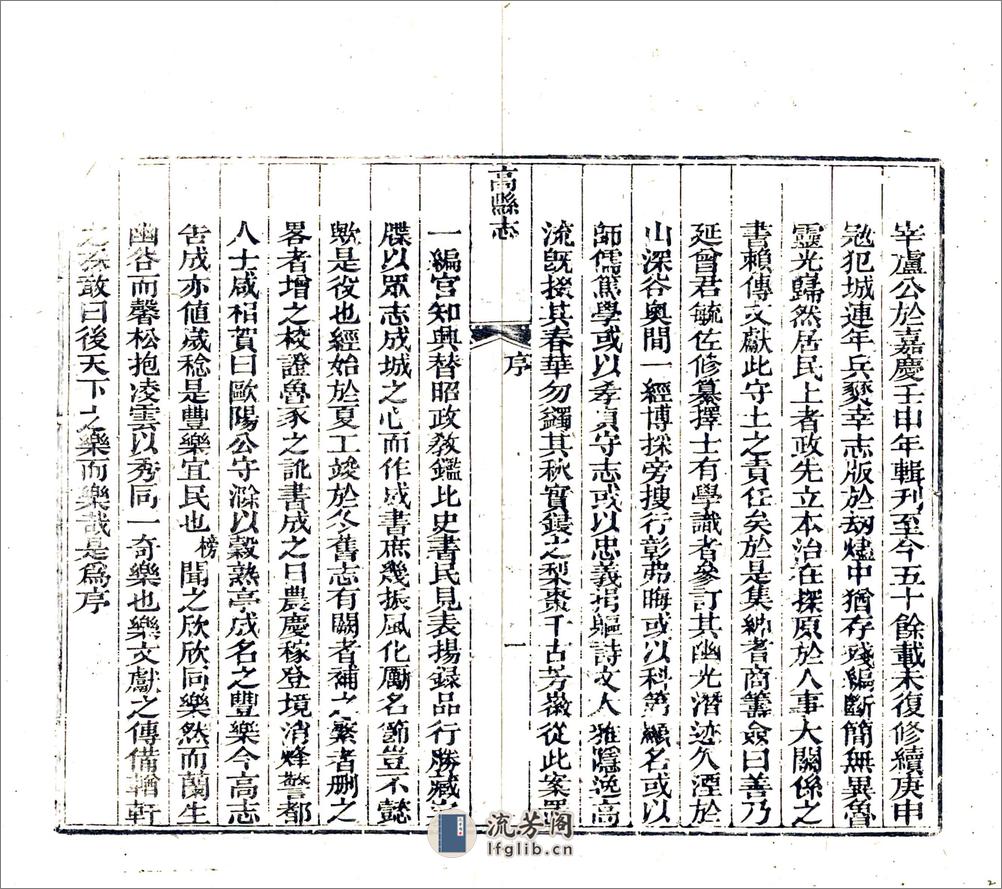 宰盧公於嘉慶壬申年輯刊至今五十餘載未復修續庚申
冦犯城連年兵燹幸志版於刼燼中猶存殘編斷簡無異魯
靈光歸然居民上者政先立本治在探原於人事大關係之
書賴傳文獻此守土之責任矣於是集納耆商籌僉曰善乃
延曾君毓佐修纂擇士有學識者參訂其幽光潛迹久湮於
山深谷奧間一經博採旁搜行彰弗晦或以科第顯名或以
師儒篤學或以孝貞守志或以忠義捐軀詩文人雅隱逸高
流旣掞其春華勿鐲其秋實鐫之梨棗千古芳徽從此案置
高縣志
序
一
一編官知興替昭政敎鑑比史書民見表揚録品行勝藏家
牒以眾志成城之心而作成書庶幾振風化勵名節豈不懿
歟是役也經始於夏工竣於冬舊志有闕者補之繁者刪之
畧者增之校證魯豕之訛書成之日農慶稼登境消烽警都
人士咸相賀曰歐陽公守滁以穀熟亭成名之豐樂今高志
告成亦值歲稔是豐樂宜民也榜聞之欣欣同樂然而蘭生
幽谷而馨松抱凌雲以秀同一奇樂也樂文獻之傳備輶軒
之採敢曰後天下之樂而樂哉是爲序
流芳阁
lfglib.cn